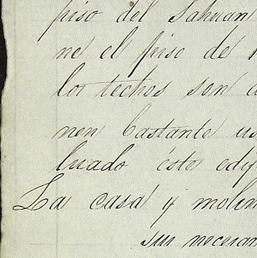 piso del Sahuan
ne el piso de
los techos son
nen bastante us
luado este edy
La casa y molin
sus necesar